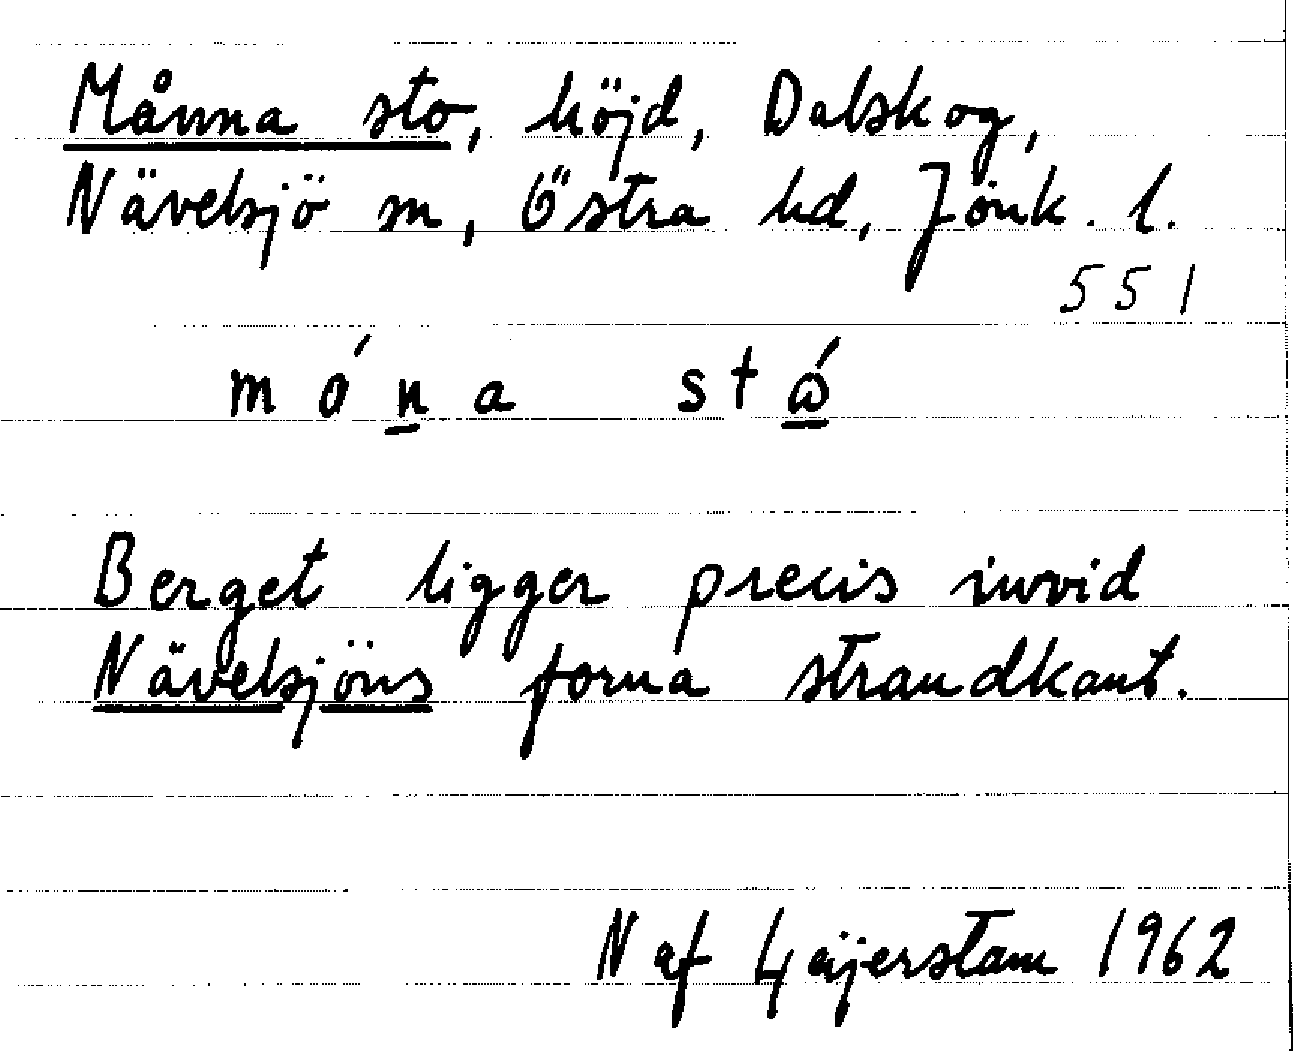 Månna sto, höjd, Dalskog,
Nävelsjö sn, Östra hd, Jönk. l.
551
móna stώ
Berget ligger precis invid
Nävelsjöns forna strandkant.
N af Geijerstam 1962